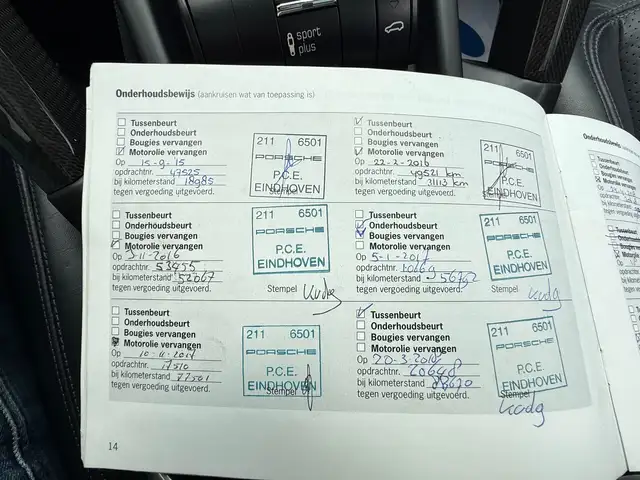 sport
plus
Onderhoudsbewijs (aankruisen wat van toepassing is)
Tussenbeurt
Onderhoudsbeurt
Bougies vervangen
Motorolie vervangen
Op 15-9-15
opdrachtnr. 47525
bij kilometerstand 18985
tegen vergoeding uitgevoerd.
211 6501
PORSCHE
P.C.E.
EINDHOVEN
Stempel
Tussenbeurt
Onderhoudsbeurt
Bougies vervangen
Motorolie vervangen
Op 22-2-2016
opdrachtnr. 49521
bij kilometerstand 31113 km
tegen vergoeding uitgevoerd.
211 6501
PORSCHE
P.C.E.
EINDHOVEN
Tussenbeurt
Onderhoudsbeurt
Bougies vervangen
Motorolie vervangen
Op 3-11-2016
opdrachtnr. 53455
bij kilometerstand 52067
tegen vergoeding uitgevoerd.
211 6501
PORSCHE
P.C.E.
EINDHOVEN
Stempel
Tussenbeurt
Onderhoudsbeurt
Bougies vervangen
Motorolie vervangen
Op
opdrachtnr.
bij kilometerstand 56762
tegen vergoeding uitgevoerd.
211 6501
PORSCHE
P.C.E.
EINDHOVEN
Stempel
Tussenbeurt
Onderhoudsbeurt
Bougies vervangen
Motorolie vervangen
Op
opdrachtnr. 17510
bij kilometerstand 77501
tegen vergoeding uitgevoerd.
211 6501
PORSCHE
P.C.E.
EINDHOVEN
Stempel
Tussenbeurt
Onderhoudsbeurt
Bougies vervangen
Motorolie vervangen
Op
opdrachtnr. 20648
bij kilometerstand
tegen vergoeding uitgevoerd.
211 6501
PORSCHE
P.C.E.
EINDHOVEN
Stempel
14